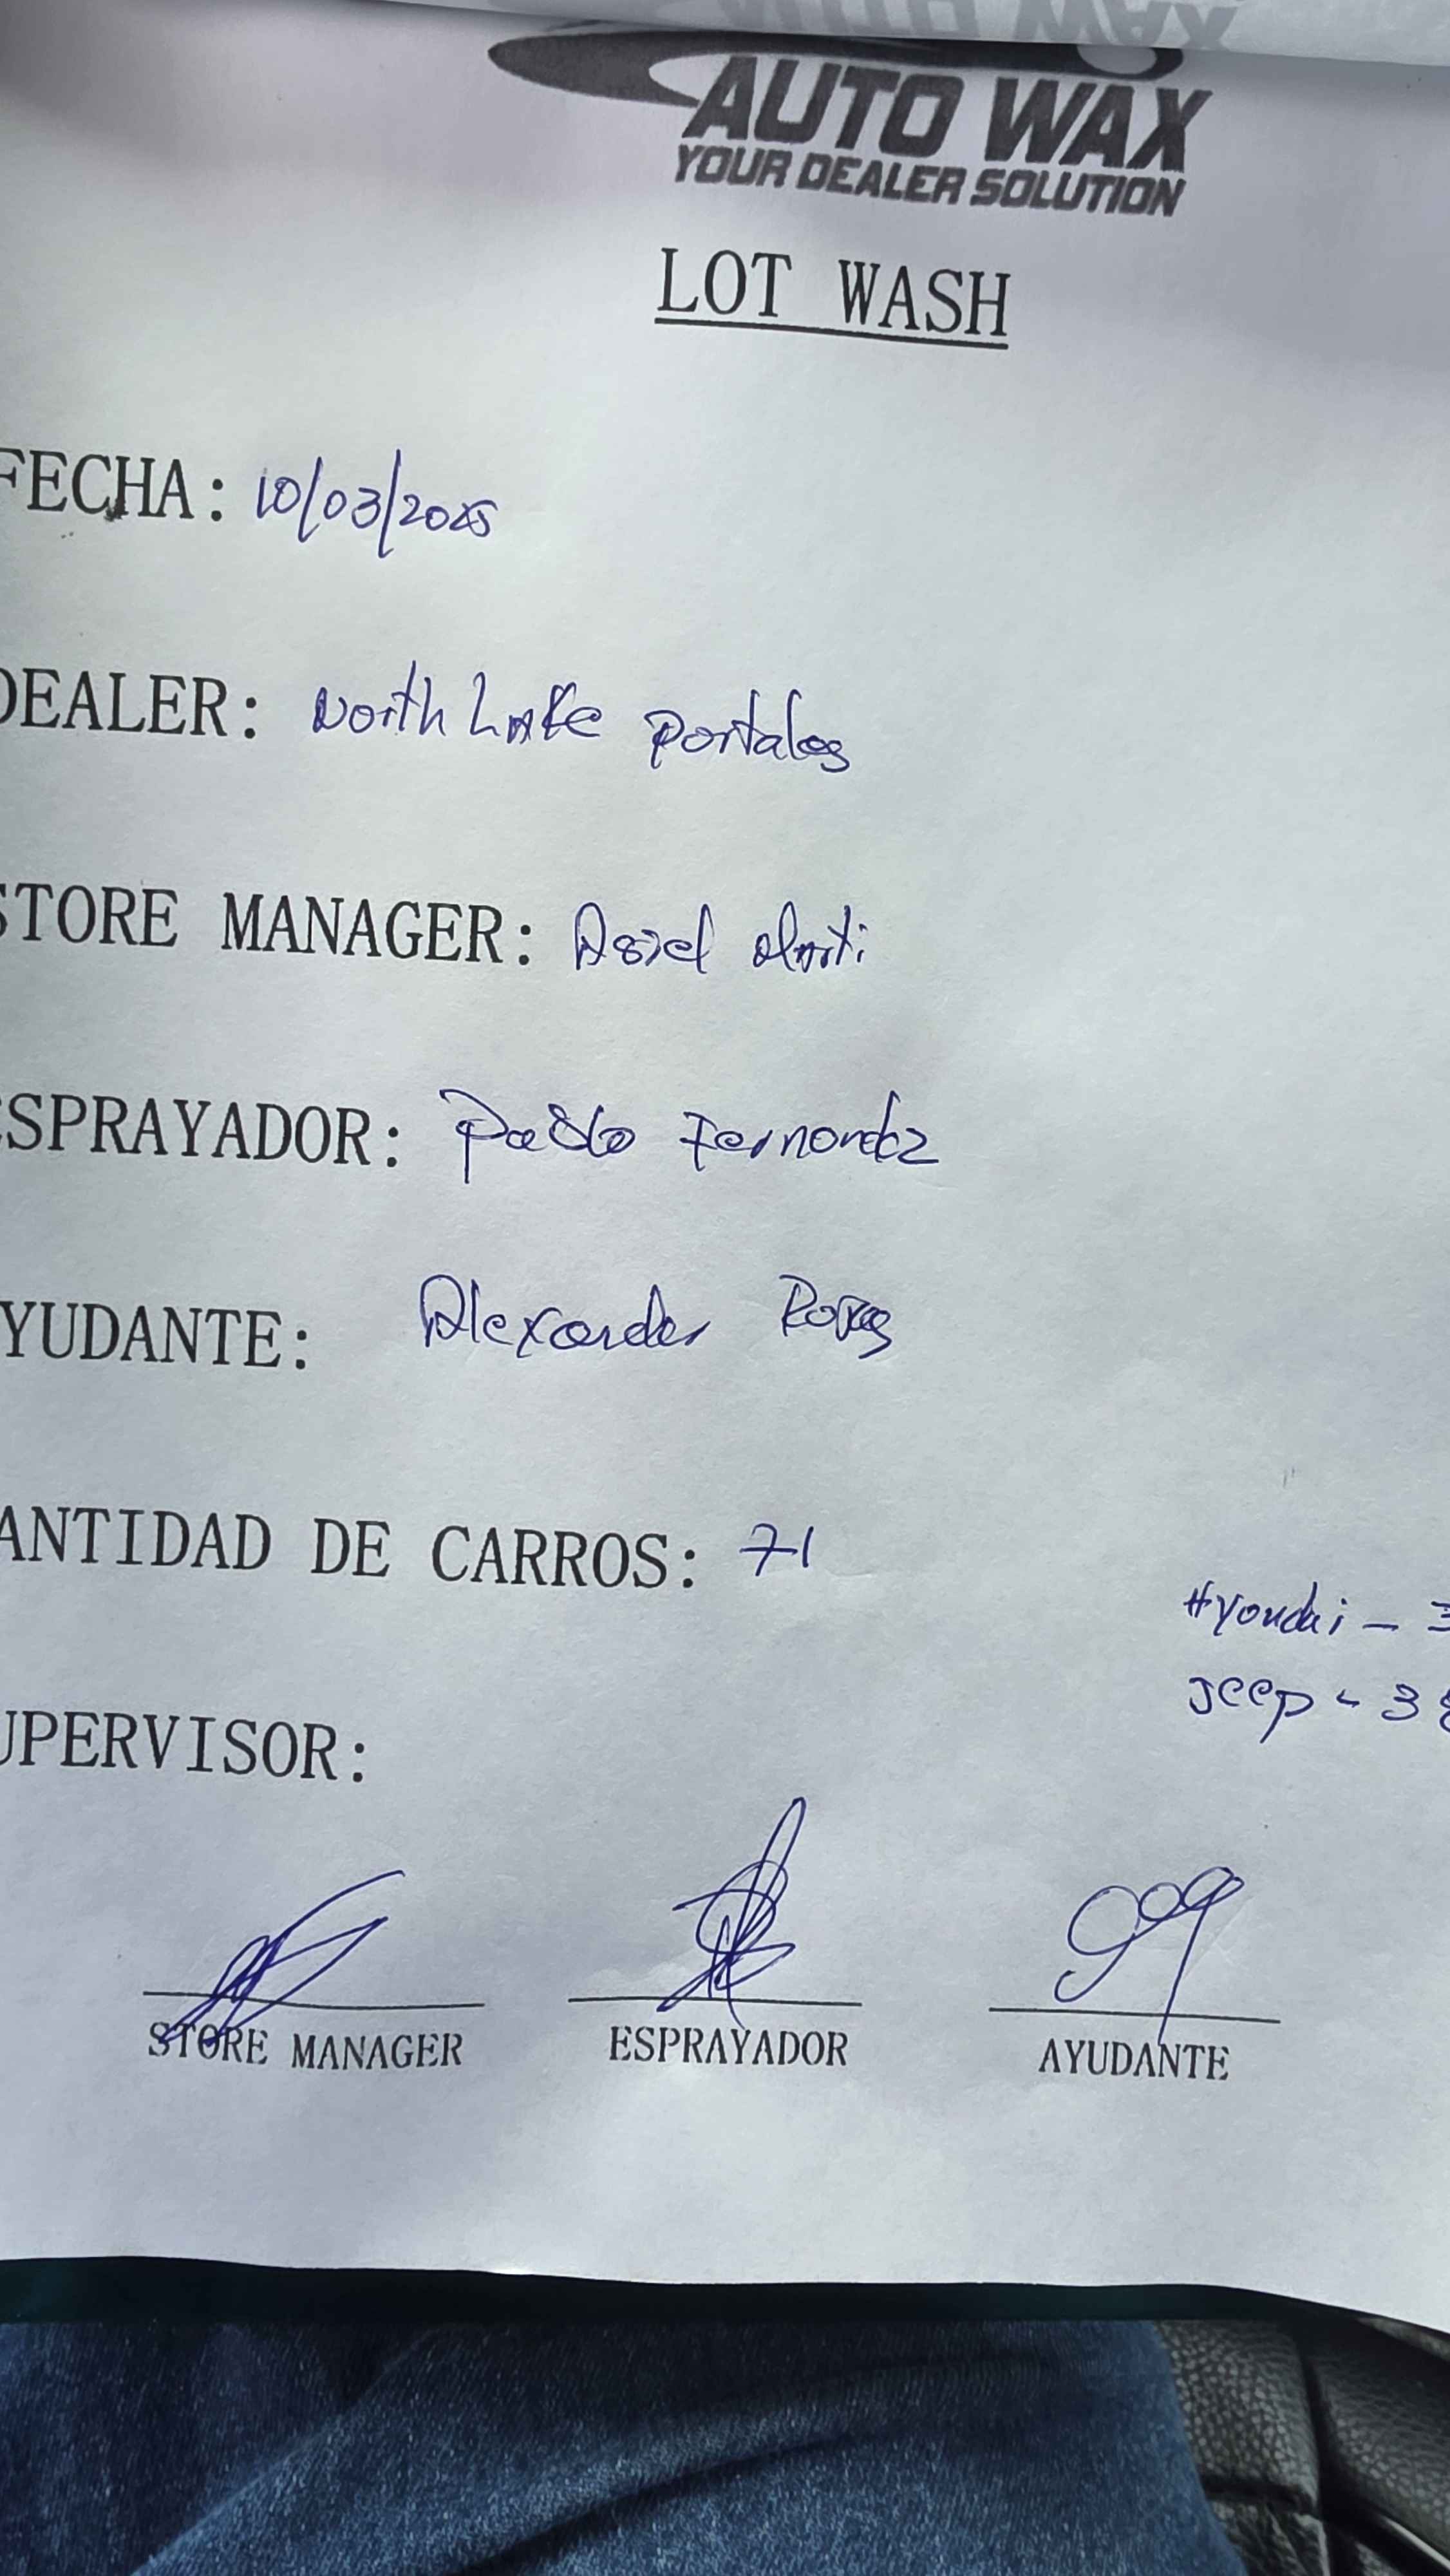 AUTO WAX
AUTO WAX
YOUR DEALER SOLUTION
LOT WASH
FECHA: 10/03/2025
DEALER: North Lake portales
STORE MANAGER:
ESPRAYADOR: Pablo Fernandez
YUDANTE: Alexander Rojas
ANTIDAD DE CARROS: 71
Hyundai - 3
Jeep - 38
UPERVISOR:
STORE MANAGER ESPRAYADOR AYUDANTE